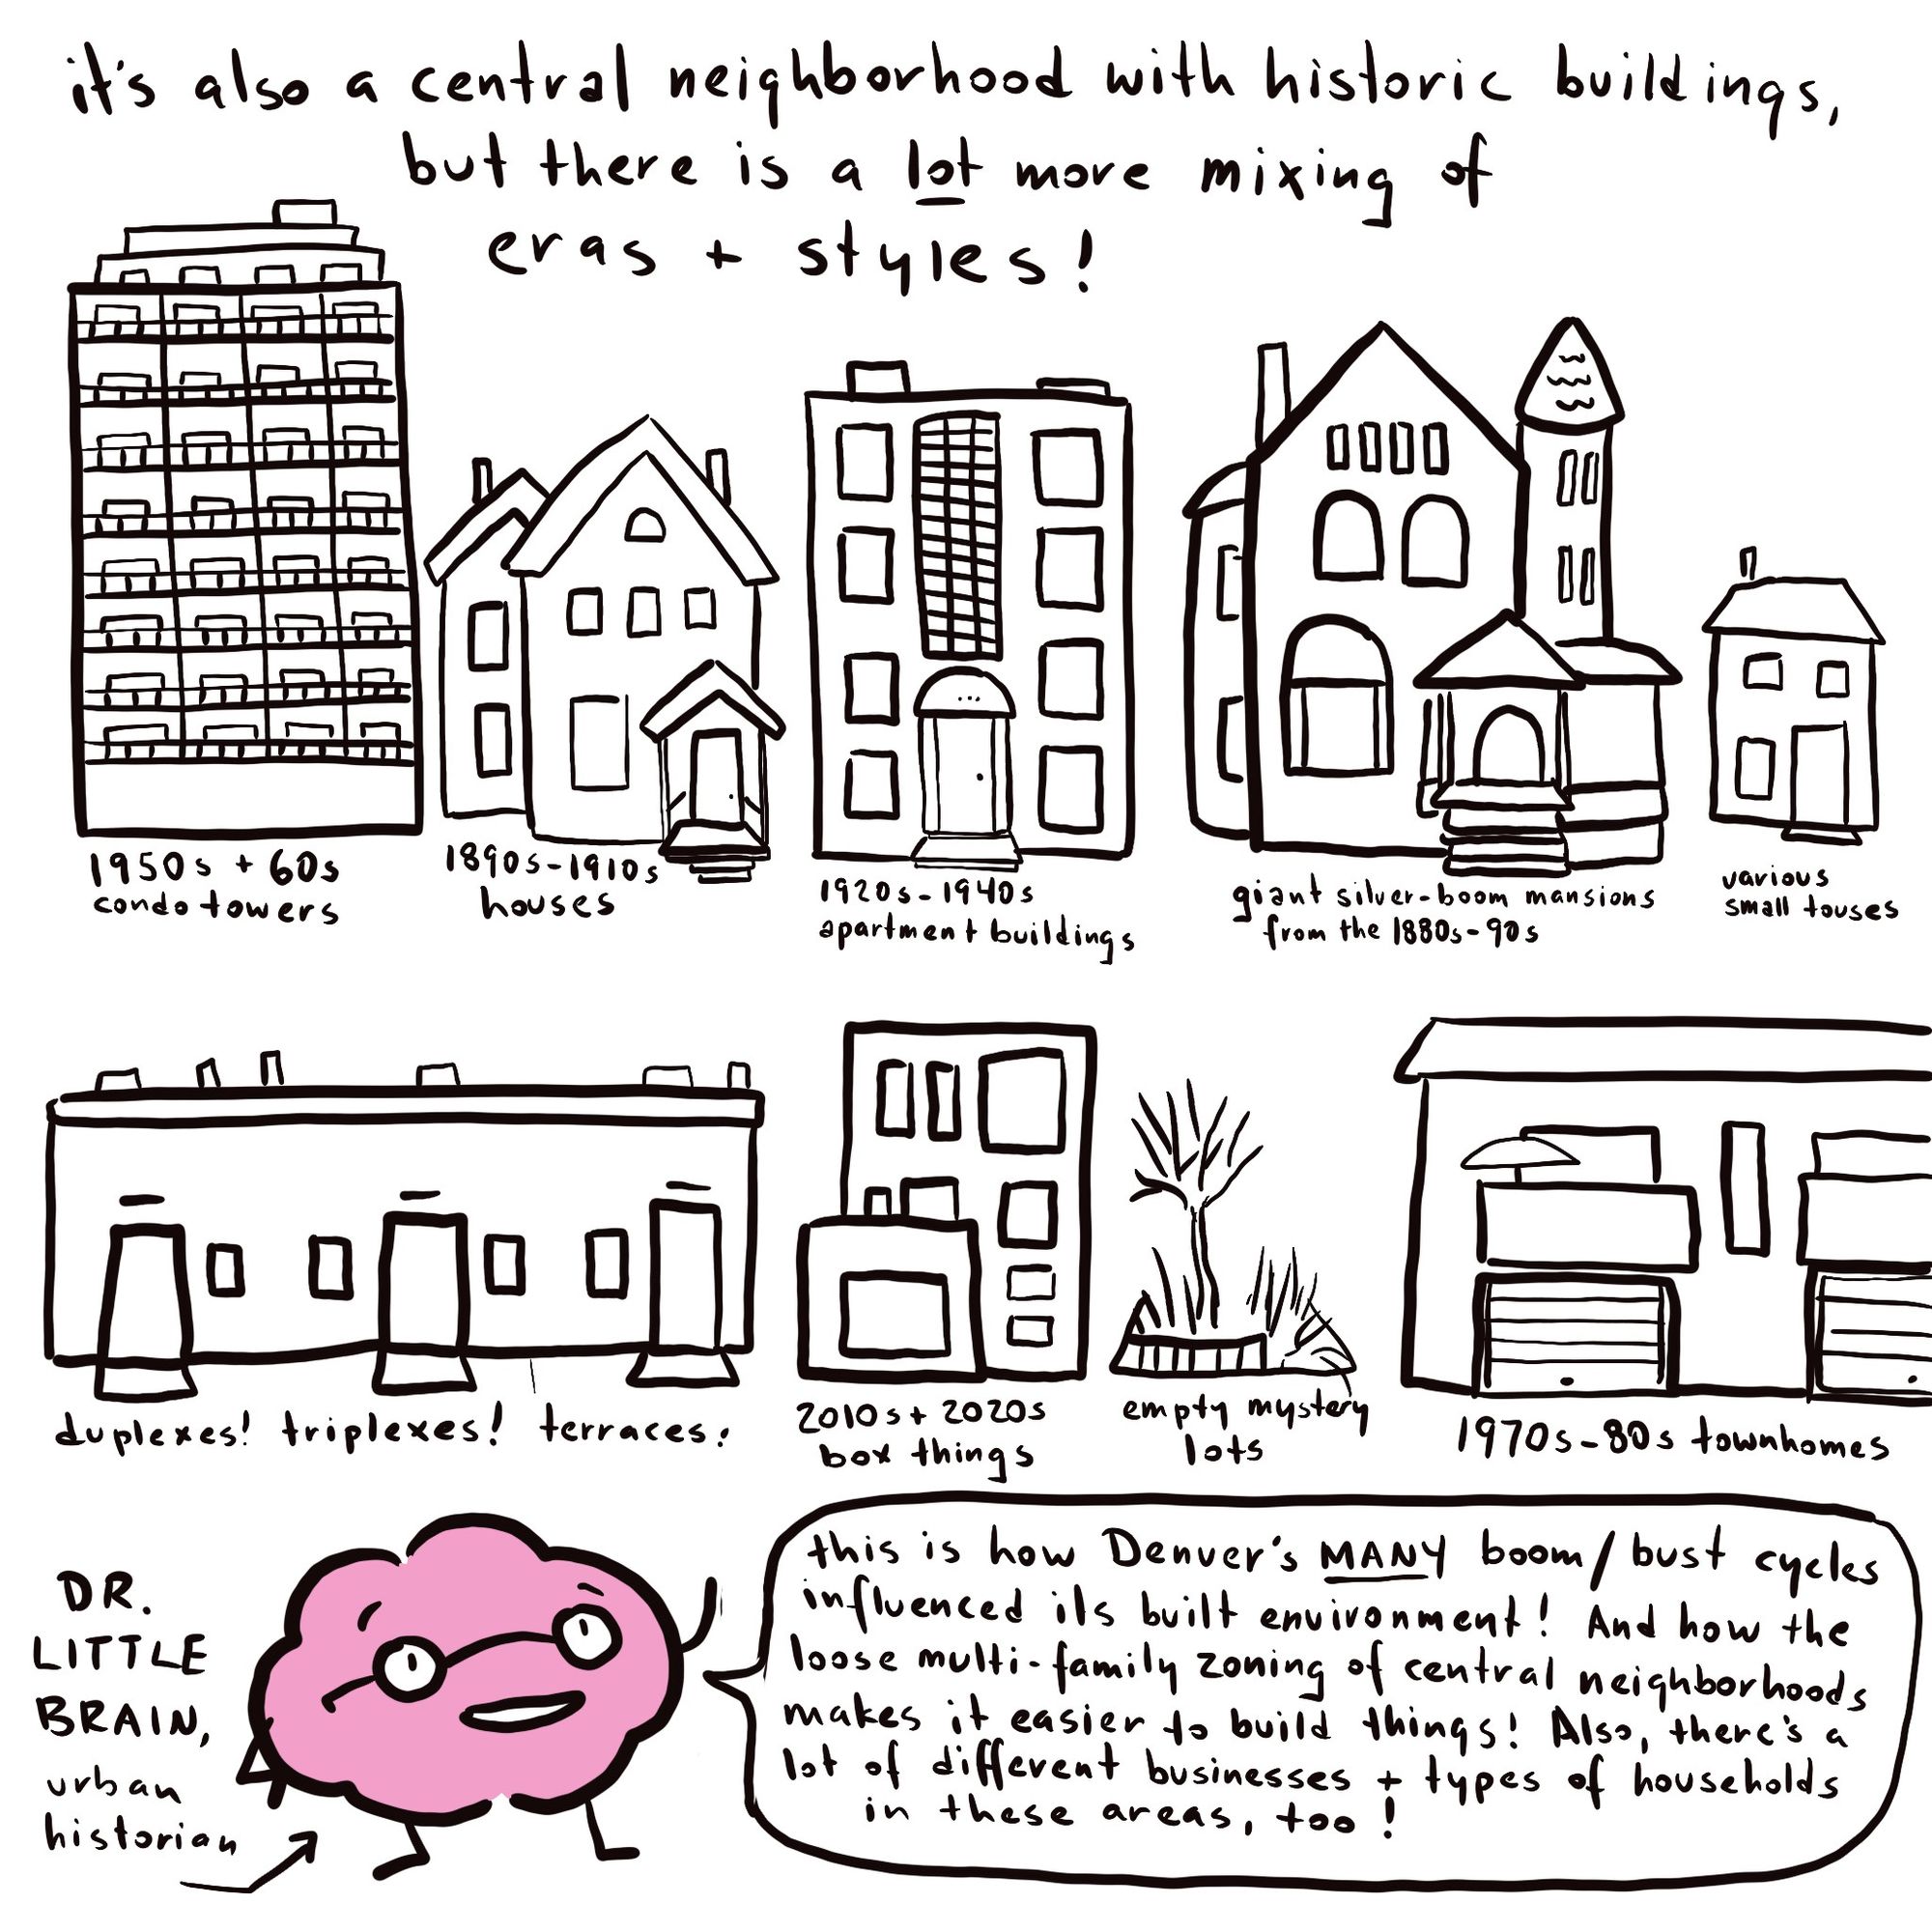 it's also a central neighborhood with historic buildings,
but there is a lot more mixing of
eras + styles!
1950s + 60s
condo towers
1890s-1910s
houses
1920s-1940s
apartment buildings
giant silver-boom mansions
from the 1880s-90s
various
small touses
duplexes! triplexes! terraces.
2010s + 2020s
box things
empty mystery
lots
1970s-80s townhomes
DR.
LITTLE
BRAIN,
urban
historian
this is how Denver's MANY boom/bust cycles
influenced its built environment! And how the
loose multi-family zoning of central neighborhoods
makes it easier to build things! Also, there's a
lot of different businesses + types of households
in these areas, too!